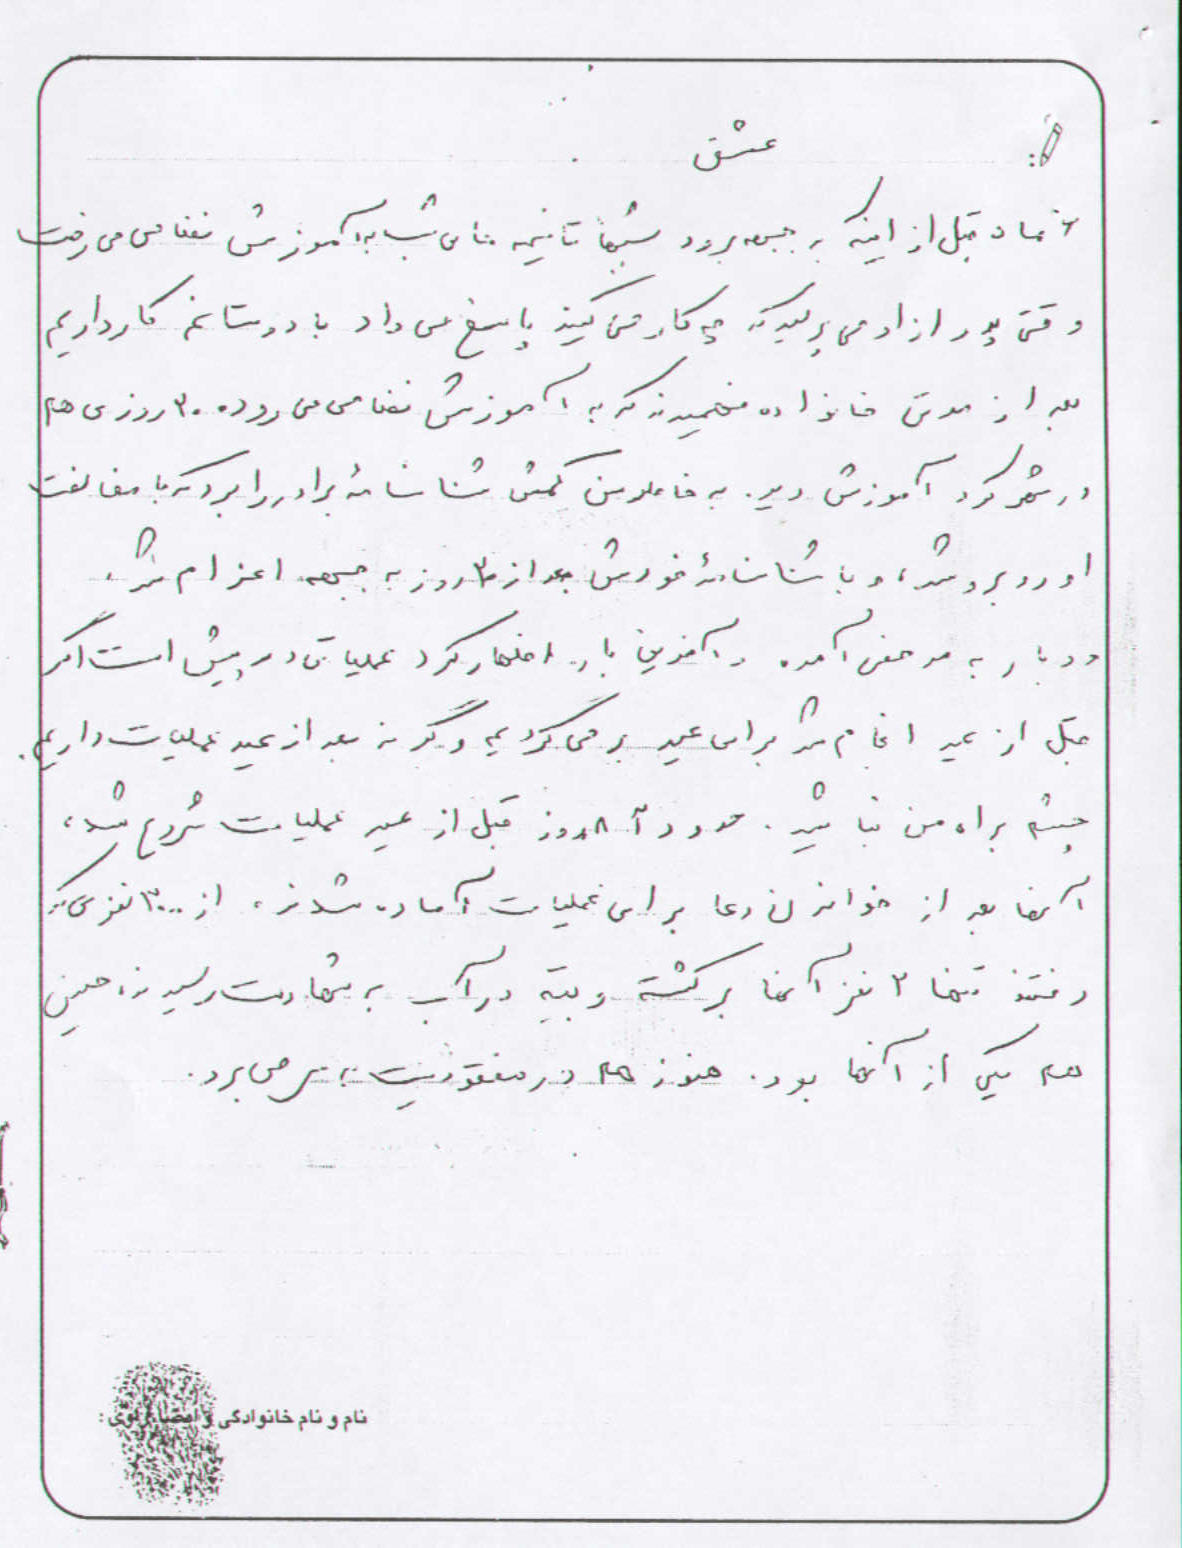 عشق
۶ ماه قبل از اینکه به جبهه برود شبها تا نیمه های شب به آموزش نظامی می رفت
وقتی پدر از او می پرسید که چه کار می کنید پاسخ می داد با دوستانم کار داریم
بعد از مدتی خانواده فهمیدند که به آموزش نظامی می رود. ۲۰ روزی هم
در شهرکرد آموزش دید. به خاطر سن کمش شناسنامهٔ برادر را برد که با مخالفت
او روبرو شد، و با شناسنامهٔ خودش بعد از ۲۰ روز به جبهه اعزام شد.
دوبار به مرخصی آمده و آخرین بار اظهار کرد عملیاتی در پیش است اگر
قبل از عید انجام شد برای عید بر می گردیم وگرنه بعد از عید عملیات داریم.
چشم براه من نباشید. حدود ۸ روز قبل از عید عملیات شروع شد،
آنها بعد از خواندن دعا برای عملیات آماده شدند، از ۳۰۰ نفری که
رفتند تنها ۲ نفر آنها برگشته و بقیه در آب به شهادت رسیدند، حسین
هم یکی از آنها بود. هنوز هم در مفقودیت بسر می برد.
نام و نام خانوادگی و امضا راوی :